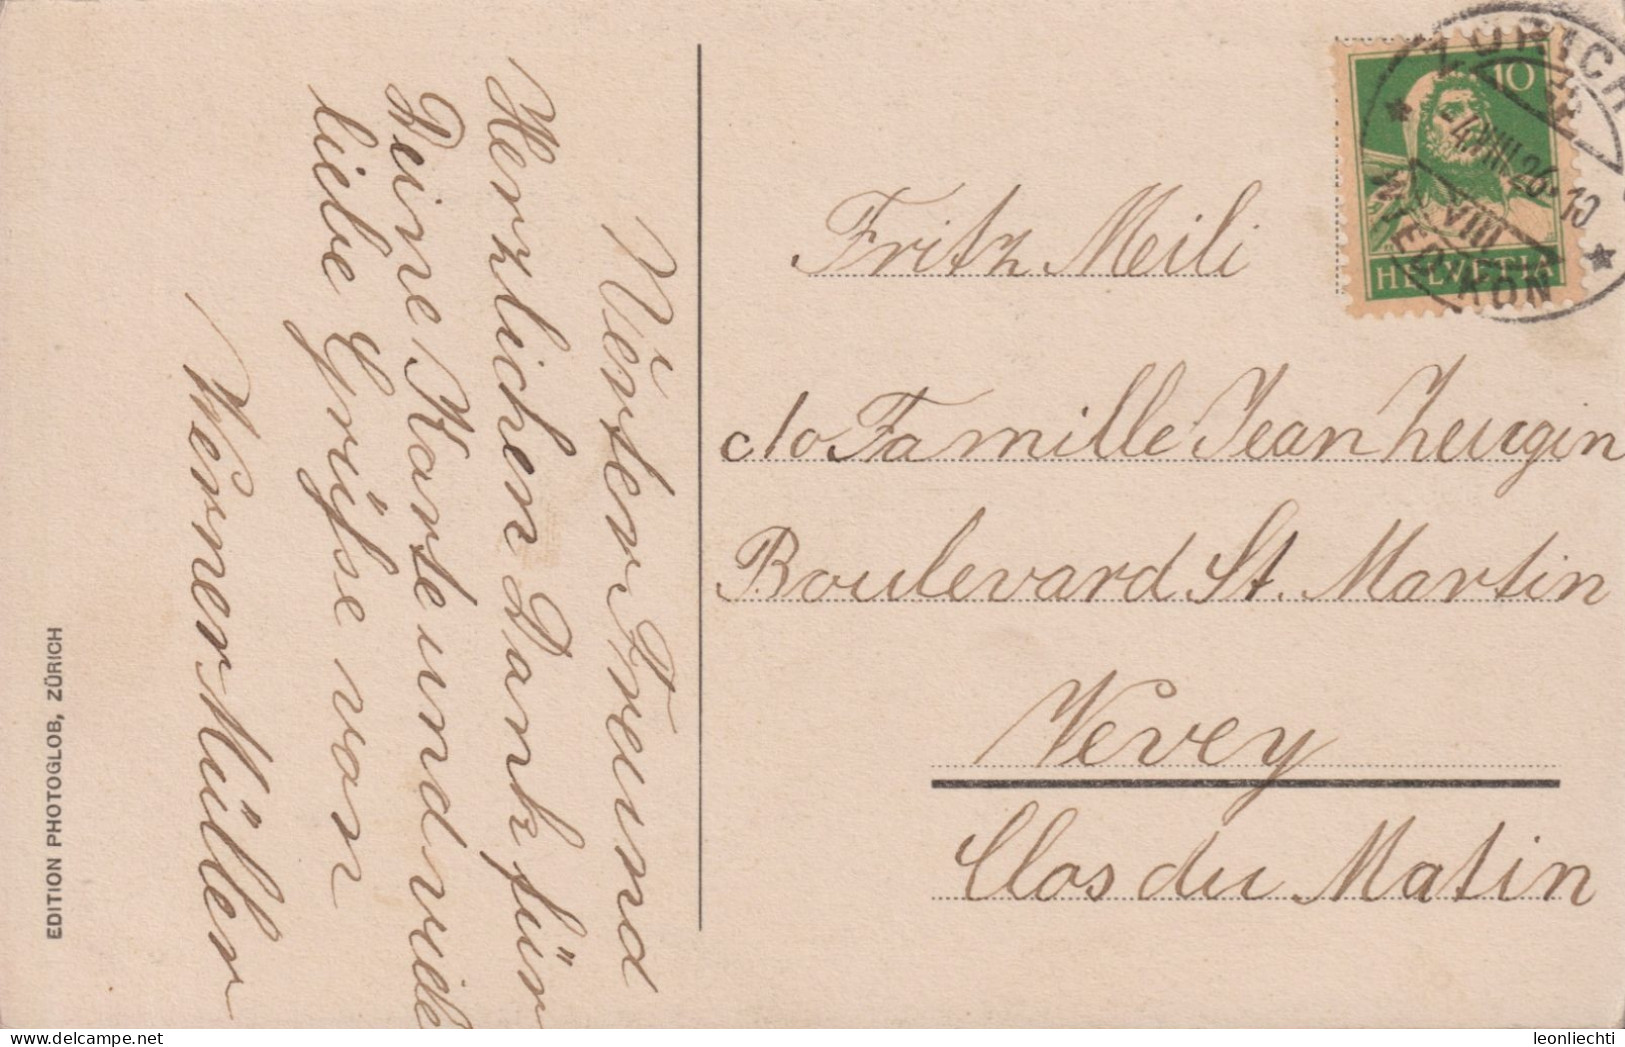 Werter Freund
Herzlichen Dank für
Deine Karte und viele
liebe Grüsse von
Werner Müller
EDITION PHOTOGLOB, ZÜRICH
10
HELVETIA
ZÜRICH
VIII
Fritz Meili
c/o Famille Jean Zeugin
Boulevard St. Martin
Vevey
Clos du Matin
leonliechti